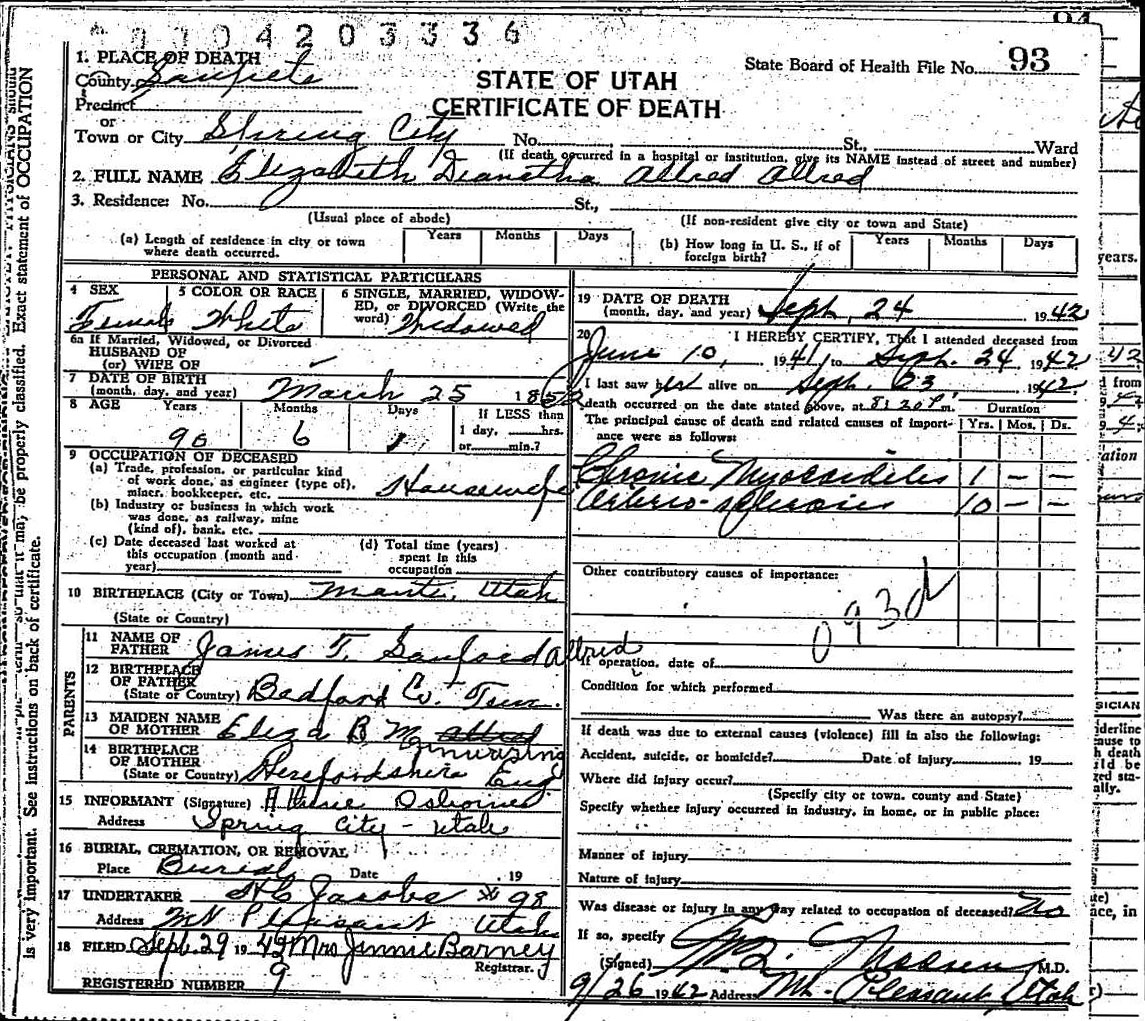 0 0 0 4 2 0 3 3 3 6
94
1. PLACE OF DEATH
County of Sanpete
Precinct
or
Town or City Spring City No. St., Ward
(If death occurred in a hospital or institution, give its NAME instead of street and number)
State Board of Health File No. 93
STATE OF UTAH
CERTIFICATE OF DEATH
2. FULL NAME Elizabeth Dianatha Allred Allred
3. Residence: No. St.,
(Usual place of abode) (If non-resident give city or town and State)
(a) Length of residence in city or town where death occurred. Years Months Days
(b) How long in U. S., if of foreign birth? Years Months Days
PERSONAL AND STATISTICAL PARTICULARS
4 SEX Female
5 COLOR OR RACE White
6 SINGLE, MARRIED, WIDOW-
ED, or DIVORCED (Write the
word) Widowed
6a If Married, Widowed, or Divorced
HUSBAND OF
(or) WIFE OF
7 DATE OF BIRTH
(month, day, and year) March 25 1852
8 AGE Years Months Days If LESS than
1 day, hrs.
or min.?
90 6
9 OCCUPATION OF DECEASED
(a) Trade, profession, or particular kind
of work done, as engineer (type of),
miner, bookkeeper, etc. Housewife
(b) Industry or business in which work
was done, as railway, mine
(kind of), bank, etc.
(c) Date deceased last worked at
this occupation (month and
year)
(d) Total time (years)
spent in this
occupation
10 BIRTHPLACE (City or Town) Manti, Utah
(State or Country)
PARENTS
11 NAME OF
FATHER James T. Sanford Allred
12 BIRTHPLACE
OF FATHER
(State or Country) Bedford Co. Tenn.
13 MAIDEN NAME
OF MOTHER Eliza B. M
14 BIRTHPLACE
OF MOTHER
(State or Country) Herefordshire Eng
15 INFORMANT (Signature) Osborne
Address Spring City - Utah
16 BURIAL, CREMATION, OR REMOVAL
Place Burial Date , 19
17 UNDERTAKER H C Jacobs 98
Address Mt Pleasant Utah
18 FILED Sept. 29 1942 Mrs Jinnie Barney
Registrar.
REGISTERED NUMBER 9
19 DATE OF DEATH
(month, day, and year) Sept. 24 1942
20 I HEREBY CERTIFY, That I attended deceased from
June 10, 1941, to Sept. 24 1942
I last saw her alive on Sept. 23 1942
death occurred on the date stated above, at 8:20 P. m.
The principal cause of death and related causes of import-
ance were as follows:
Duration
Yrs. Mos. Ds.
Chronic Myocarditis 1 - -
Arterio-sclerosis 10 - -
Other contributory causes of importance:
093d
If operation, date of
Condition for which performed
Was there an autopsy?
If death was due to external causes (violence) fill in also the following:
Accident, suicide, or homicide? Date of injury 19
Where did injury occur?
(Specify city or town, county and State)
Specify whether injury occurred in industry, in home, or in public place:
Manner of injury
Nature of injury
Was disease or injury in any way related to occupation of deceased? No
If so, specify
(Signed) M.D.
9/26 1942 Address Mt. Pleasant, Utah
is very important. See instructions on back of certificate.
may be properly classified. Exact statement of OCCUPATION
years.
42
d from
ation
SICIAN